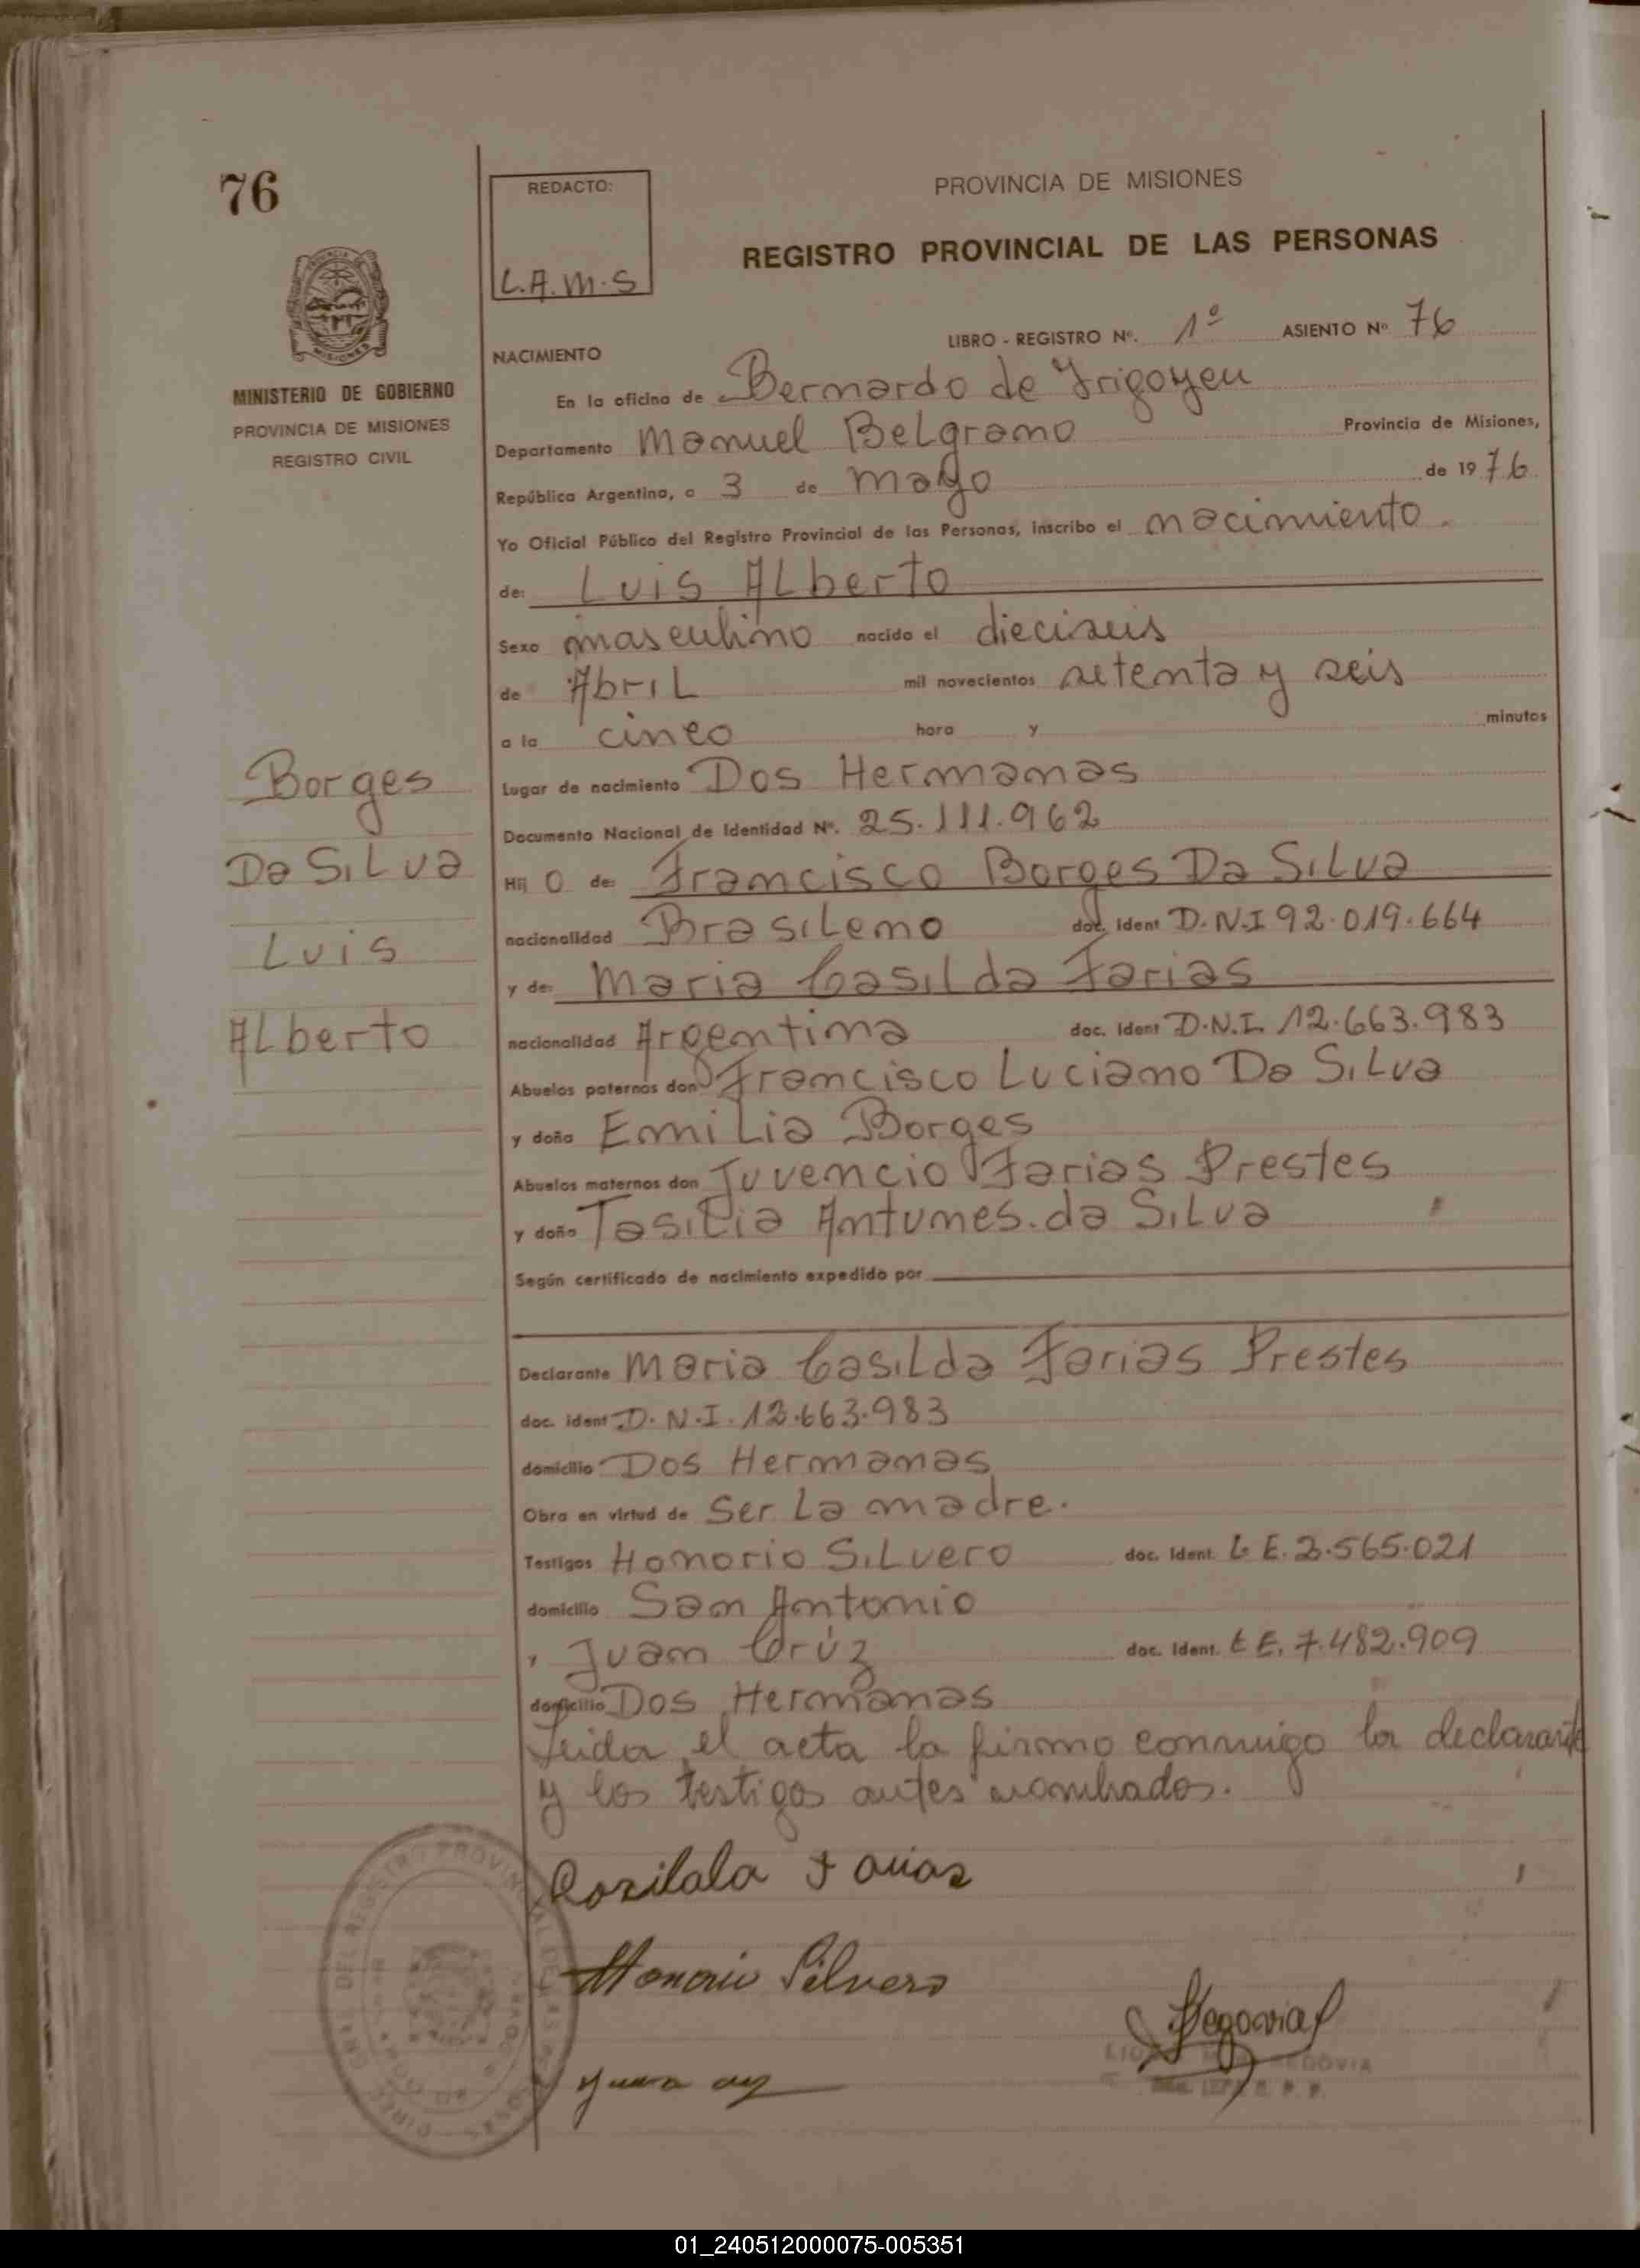 76
REDACTO:
L.A.M.S
PROVINCIA DE MISIONES
REGISTRO PROVINCIAL DE LAS PERSONAS
MINISTERIO DE GOBIERNO
PROVINCIA DE MISIONES
REGISTRO CIVIL
LIBRO - REGISTRO Nº. 1º ASIENTO Nº 76
NACIMIENTO
En la oficina de Bernardo de Irigoyen
Departamento Manuel Belgrano Provincia de Misiones,
República Argentina, a 3 de mayo de 1976
Yo Oficial Público del Registro Provincial de las Personas, inscribo el nacimiento.
de: Luis Alberto
Sexo masculino nacido el dieciseis
de Abril mil novecientos setenta y seis
a la cinco hora y minutos
Lugar de nacimiento Dos Hermanas
Documento Nacional de Identidad Nº. 25.111.962
Hij o de: Francisco Borges Da Silva
nacionalidad Brasileno doc. Ident D.N.I 92.019.664
y de: Maria Casilda Farias
nacionalidad Argentina doc. Ident D.N.I. 12.663.983
Abuelos paternos don Francisco Luciano Da Silva
y doña Emilia Borges
Abuelos maternos don Juvencio Farias Prestes
y doña Tasilia Antunes da Silva
Según certificado de nacimiento expedido por
Borges
Da Silva
Luis
Alberto
Declarante Maria Casilda Farias Prestes
doc. ident D.N.I. 12.663.983
domicilio Dos Hermanas
Obra en virtud de Ser la madre.
Testigos Honorio Silvero doc. Ident. L E. 2.565.021
domicilio San Antonio
y Juan Crúz doc. Ident. L E. 7.482.909
domicilio Dos Hermanas
Leida el acta la firmo conmigo la declarante
y los testigos antes nombrados.
Casilda Farias
Honorio Silvero
Segovia
01_240512000075-005351